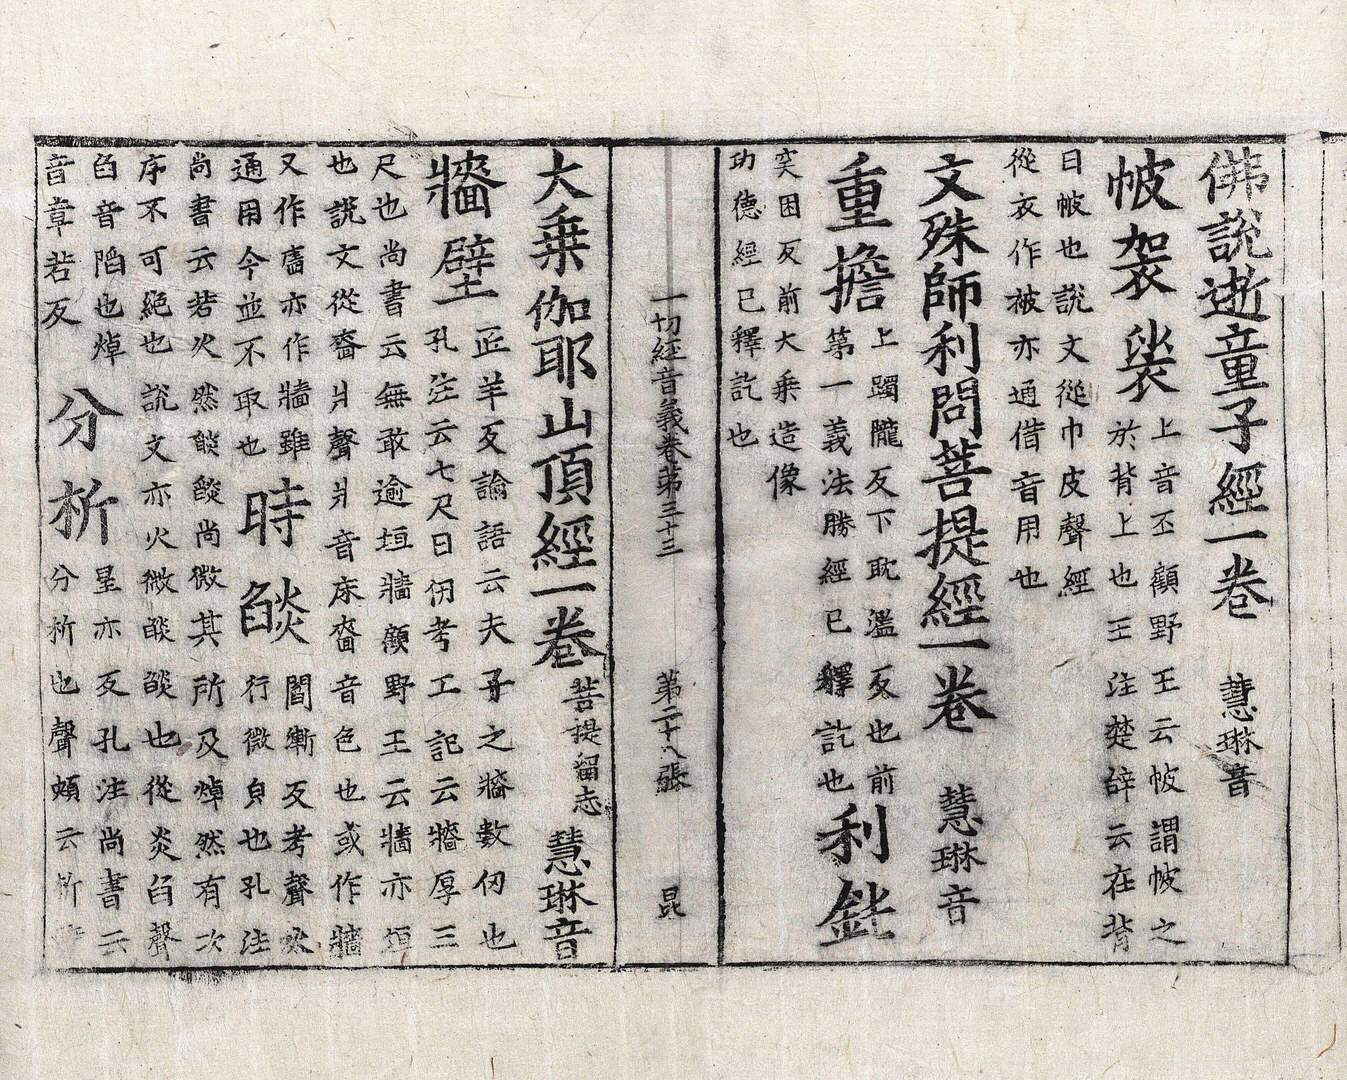 佛說逝童子經一卷　慧琳音
帔袈裟
上音丕顧野王云帔謂帔之
於背上也王注楚辝云在背
曰帔也說文從巾皮聲經
從衣作被亦通借音用也
文殊師利問菩提經一卷　慧琳音
重擔
上躅隴反下耽濫反也前
第一義法勝經已釋訖也
利鈚
突困反前大乗造像
功德經已釋訖也
一切經音義卷第三十三　第二十八張　昆
大乗伽耶山頂經一卷　菩提留志　慧琳音
牆壁
匠羊反論語云夫子之牆數仞也
孔注云七尺曰仞考工記云牆厚三
尺也尚書云無敢逾垣牆顧野王云牆亦垣
也說文從嗇爿聲爿音床嗇音色也或作牆
又作廧亦作牆雖
通用今並不取也
時燄
閻漸反考聲火
行微皃也孔注
尚書云若火然燄燄尚微其所及焯然有次
序不可絶也說文亦火微燄燄也從炎臽聲
臽音陷也焯
音章若反
分析
星亦反孔注尚書云
分析也聲頪云析